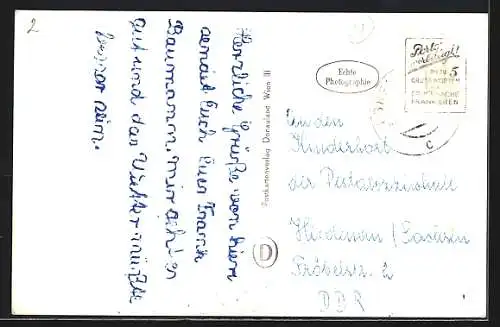 2
Herzliche Grüße von hier
sendet Euch Euer Frank
Baumann. mir geht es
gut und das Wetter müßte
besser sein.
Postkartenverlag Donauland Wien III
D
Echte
Photographie
Porto
MIT 5
GRUSSWORTEN
FRANKIEREN
C
An den
Kinderhort
der Pestalozzischule
Fröbelstr. 2
DDR